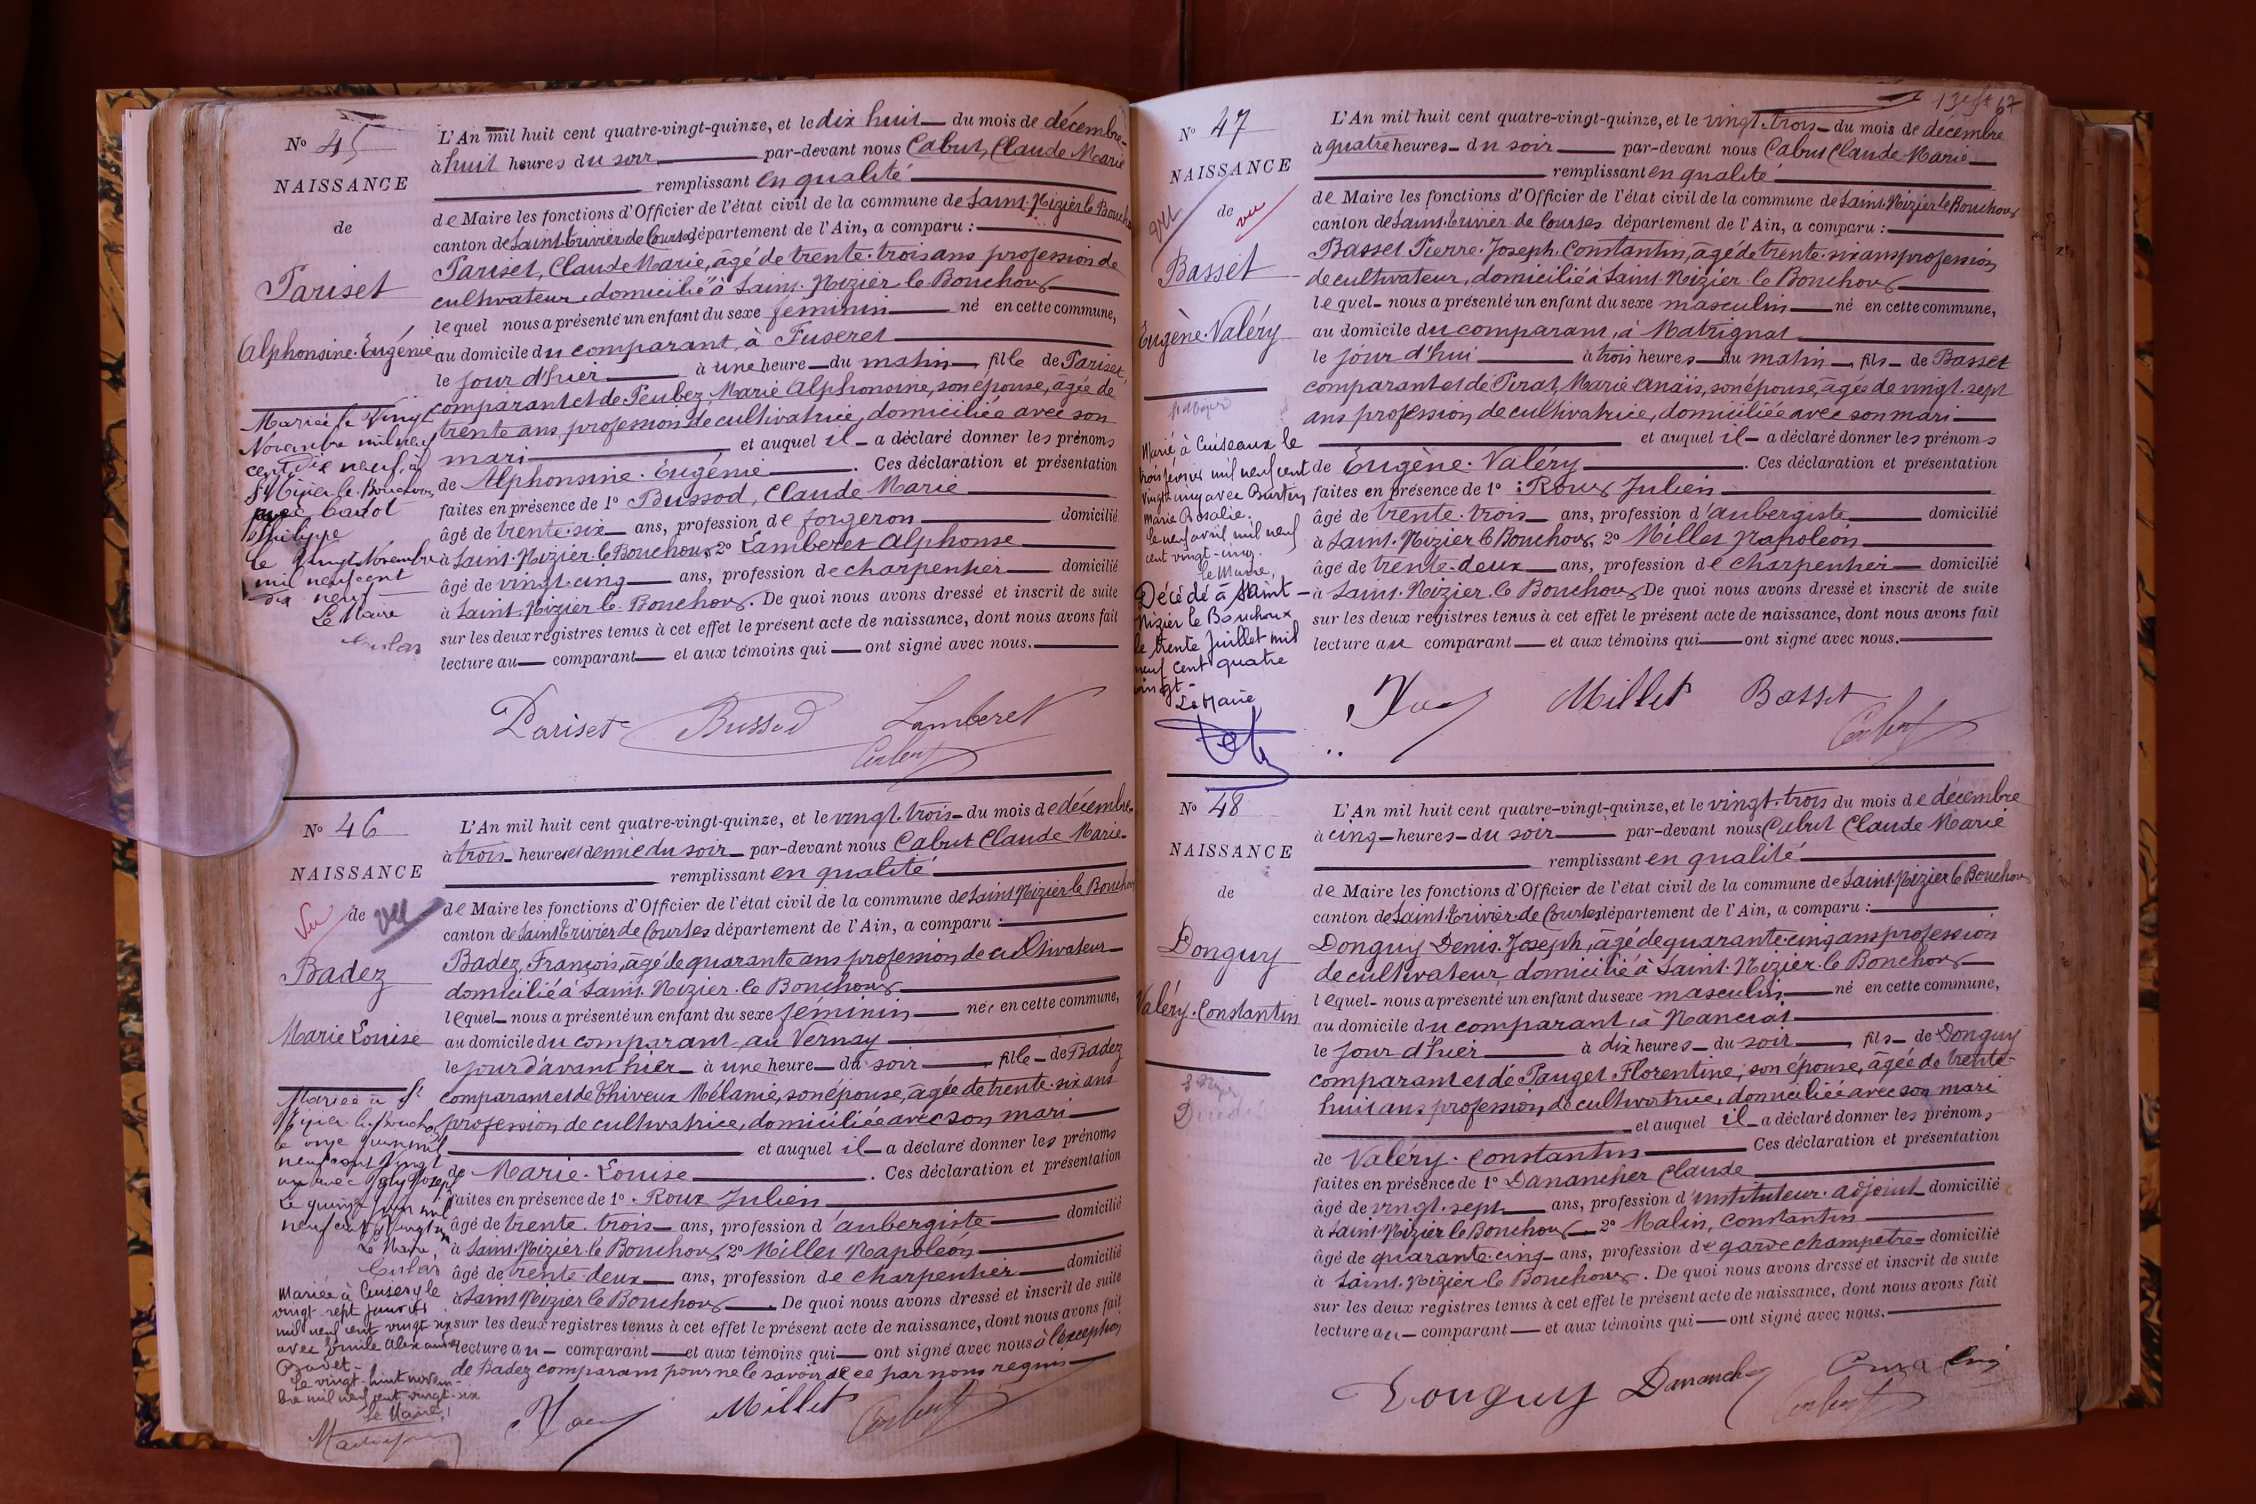 No 45
NAISSANCE
de
Pariset
Alphonsine-Eugénie
Mariée le vingt
Novembre mil neuf
cent dix neuf, à
St Nizier-le-Bouchoux
avec
Philippe
le vingt Novembre
mil neuf cent
dix neuf
Le Maire
L'An mil huit cent quatre-vingt-quinze, et le dix huit du mois de décembre
à huit heures du soir, par-devant nous Cabut, Claude Marie
remplissant en qualité
de Maire les fonctions d'Officier de l'état civil de la commune de Saint-Nizier le Bouchoux
canton de Saint-Trivier de Courtes département de l'Ain, a comparu :
Pariset, Claude Marie, âgé de trente-trois ans profession de
cultivateur, domicilié à Saint-Nizier-le-Bouchoux
lequel nous a présenté un enfant du sexe féminin né en cette commune,
au domicile du comparant, à Fuseret
le jour d'hier à une heure du matin, fille de Pariset,
comparant et de Peubez, Marie Alphonsine, son épouse, âgée de
trente ans profession de cultivatrice, domiciliée avec son
mari et auquel il a déclaré donner les prénoms
de Alphonsine-Eugénie. Ces déclaration et présentation
faites en présence de 1o Bussod, Claude Marie
âgé de trente-six ans, profession de forgeron domicilié
à Saint-Nizier le Bouchoux, 2o Lamberet Alphonse
âgé de vingt-cinq ans, profession de charpentier domicilié
à Saint-Nizier-le-Bouchoux. De quoi nous avons dressé et inscrit de suite
sur les deux registres tenus à cet effet le présent acte de naissance, dont nous avons fait
lecture au comparant et aux témoins qui ont signé avec nous.
Pariset Bussod Lamberet
Cabut
No 46
NAISSANCE
Vu de VU
Badez
Marie Louise
Mariée à St
Nizier-le-Bouchoux
le onze juin mil
neuf cent vingt
un avec Joseph
Le quinze juin mil
neuf cent vingt un
Le Maire,
Mariée à Cuisery le
vingt-sept janvier
mil neuf cent vingt six
avec Emile Alexandre
Badet-
Le vingt-huit novem-
bre mil neuf cent vingt-six
Le Maire,
L'An mil huit cent quatre-vingt-quinze, et le vingt-trois du mois de décembre
à trois heures et demie du soir par-devant nous Cabut Claude Marie
remplissant en qualité
de Maire les fonctions d'Officier de l'état civil de la commune de Saint Nizier le Bouchoux
canton de Saint Trivier de Courtes département de l'Ain, a comparu :
Badez, François, âgé de quarante ans profession de cultivateur
domicilié à Saint-Nizier-le Bouchoux
lequel nous a présenté un enfant du sexe féminin née en cette commune,
au domicile du comparant, au Vernay
le jour d'avant hier à une heure du soir, fille de Badez
comparant et de Thiveux Mélanie, son épouse, âgée de trente-six ans
profession de cultivatrice, domiciliée avec son mari
et auquel il a déclaré donner les prénoms
de Marie-Louise. Ces déclaration et présentation
faites en présence de 1o Roux Julien
âgé de trente-trois ans, profession d'aubergiste domicilié
à Saint-Nizier-le Bouchoux, 2o Millet Napoléon
âgé de trente-deux ans, profession de charpentier domicilié
à Saint Nizier le Bouchoux. De quoi nous avons dressé et inscrit de suite
sur les deux registres tenus à cet effet le présent acte de naissance, dont nous avons fait
lecture au comparant et aux témoins qui ont signé avec nous à l'exception
de Badez comparant pour ne le savoir de ce par nous requis
Roux Millet Cabut
67
No 47
NAISSANCE
VU de vu
Basset
Eugène-Valéry
Marié à Cuiseaux le
trois février mil neuf cent
vingt-cinq avec Burtin
Marie Rosalie.
Le neuf avril mil neuf
cent vingt-cinq.
Le Maire,
Décédé à Saint-
Nizier le Bouchoux
le trente juillet mil
neuf cent quatre
vingt-
Le Maire
L'An mil huit cent quatre-vingt-quinze, et le vingt-trois du mois de décembre
à quatre heures du soir par-devant nous Cabut Claude Marie
remplissant en qualité
de Maire les fonctions d'Officier de l'état civil de la commune de Saint-Nizier le Bouchoux
canton de Saint-Trivier de Courtes département de l'Ain, a comparu :
Basset Pierre-Joseph-Constantin, âgé de trente-six ans profession
de cultivateur, domicilié à Saint-Nizier-le Bouchoux
lequel nous a présenté un enfant du sexe masculin né en cette commune,
au domicile du comparant, à Matrignat
le jour d'hui à trois heures du matin, fils de Basset
comparant et de Perat, Marie Anaïs, son épouse, âgée de vingt-sept
ans profession de cultivatrice, domiciliée avec son mari
et auquel il a déclaré donner les prénoms
de Eugène-Valéry. Ces déclaration et présentation
faites en présence de 1o : Roux Julien
âgé de trente-trois ans, profession d'aubergiste domicilié
à Saint-Nizier le Bouchoux, 2o Millet Napoléon
âgé de trente-deux ans, profession de charpentier domicilié
à Saint-Nizier-le Bouchoux De quoi nous avons dressé et inscrit de suite
sur les deux registres tenus à cet effet le présent acte de naissance, dont nous avons fait
lecture au comparant et aux témoins qui ont signé avec nous.
Roux Millet Basset
Cabut
No 48
NAISSANCE
de
Donguy
Valéry-Constantin
L'An mil huit cent quatre-vingt-quinze, et le vingt-trois du mois de décembre
à cinq heures du soir par-devant nous Cabut Claude Marie
remplissant en qualité
de Maire les fonctions d'Officier de l'état civil de la commune de Saint-Nizier le Bouchoux
canton de Saint-Trivier-de Courtes département de l'Ain, a comparu :
Donguy Denis-Joseph, âgé de quarante-cinq ans profession
de cultivateur, domicilié à Saint-Nizier-le Bouchoux
lequel nous a présenté un enfant du sexe masculin né en cette commune,
au domicile du comparant, à Nanciat
le jour d'hier à dix heures du soir, fils de Donguy
comparant et de Pauget Florentine, son épouse, âgée de trente-
huit ans profession de cultivatrice, domiciliée avec son mari
et auquel il a déclaré donner les prénoms
de Valéry-Constantin Ces déclaration et présentation
faites en présence de 1o Danancher Claude
âgé de vingt-sept ans, profession d'instituteur-adjoint domicilié
à Saint-Nizier le Bouchoux 2o Malin, Constantin
âgé de quarante-cinq ans, profession de garde champêtre domicilié
à Saint-Nizier le Bouchoux. De quoi nous avons dressé et inscrit de suite
sur les deux registres tenus à cet effet le présent acte de naissance, dont nous avons fait
lecture au comparant et aux témoins qui ont signé avec nous.
Donguy Cabut